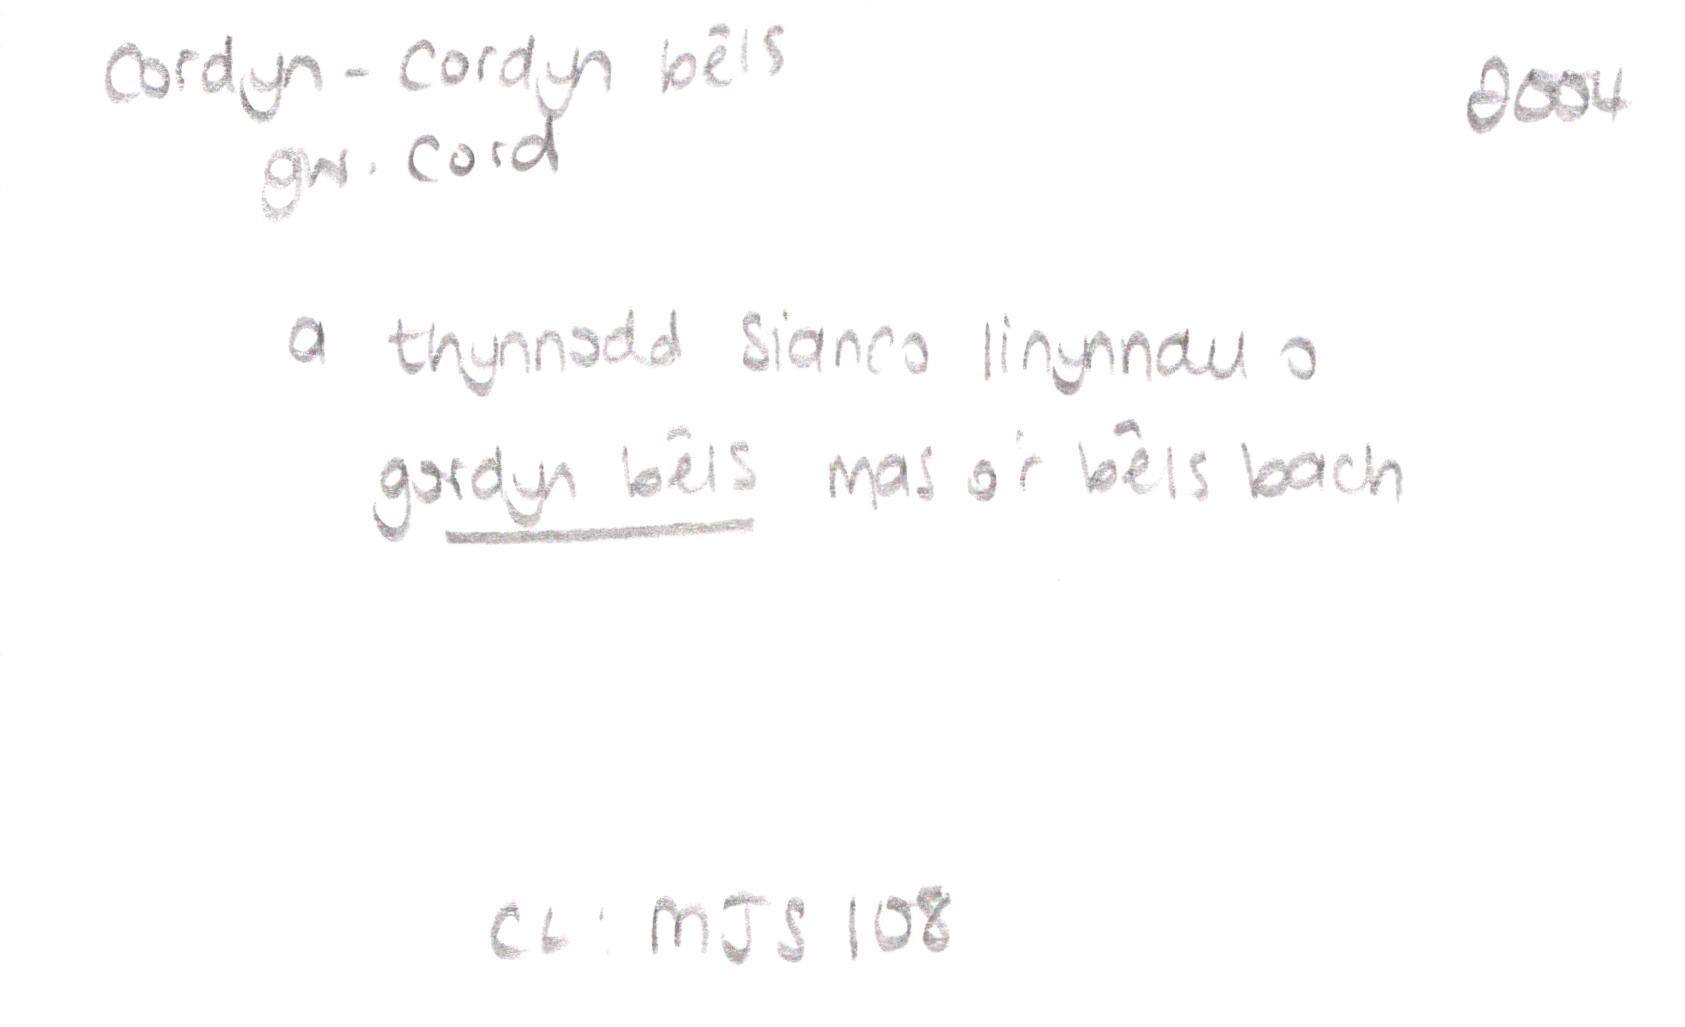 Cordyn - Cordyn bêls 2004
gw. cord
a thynnodd Sianco linynnau o
gordyn bêls mas o'r bêls bach
CL: MJS 108